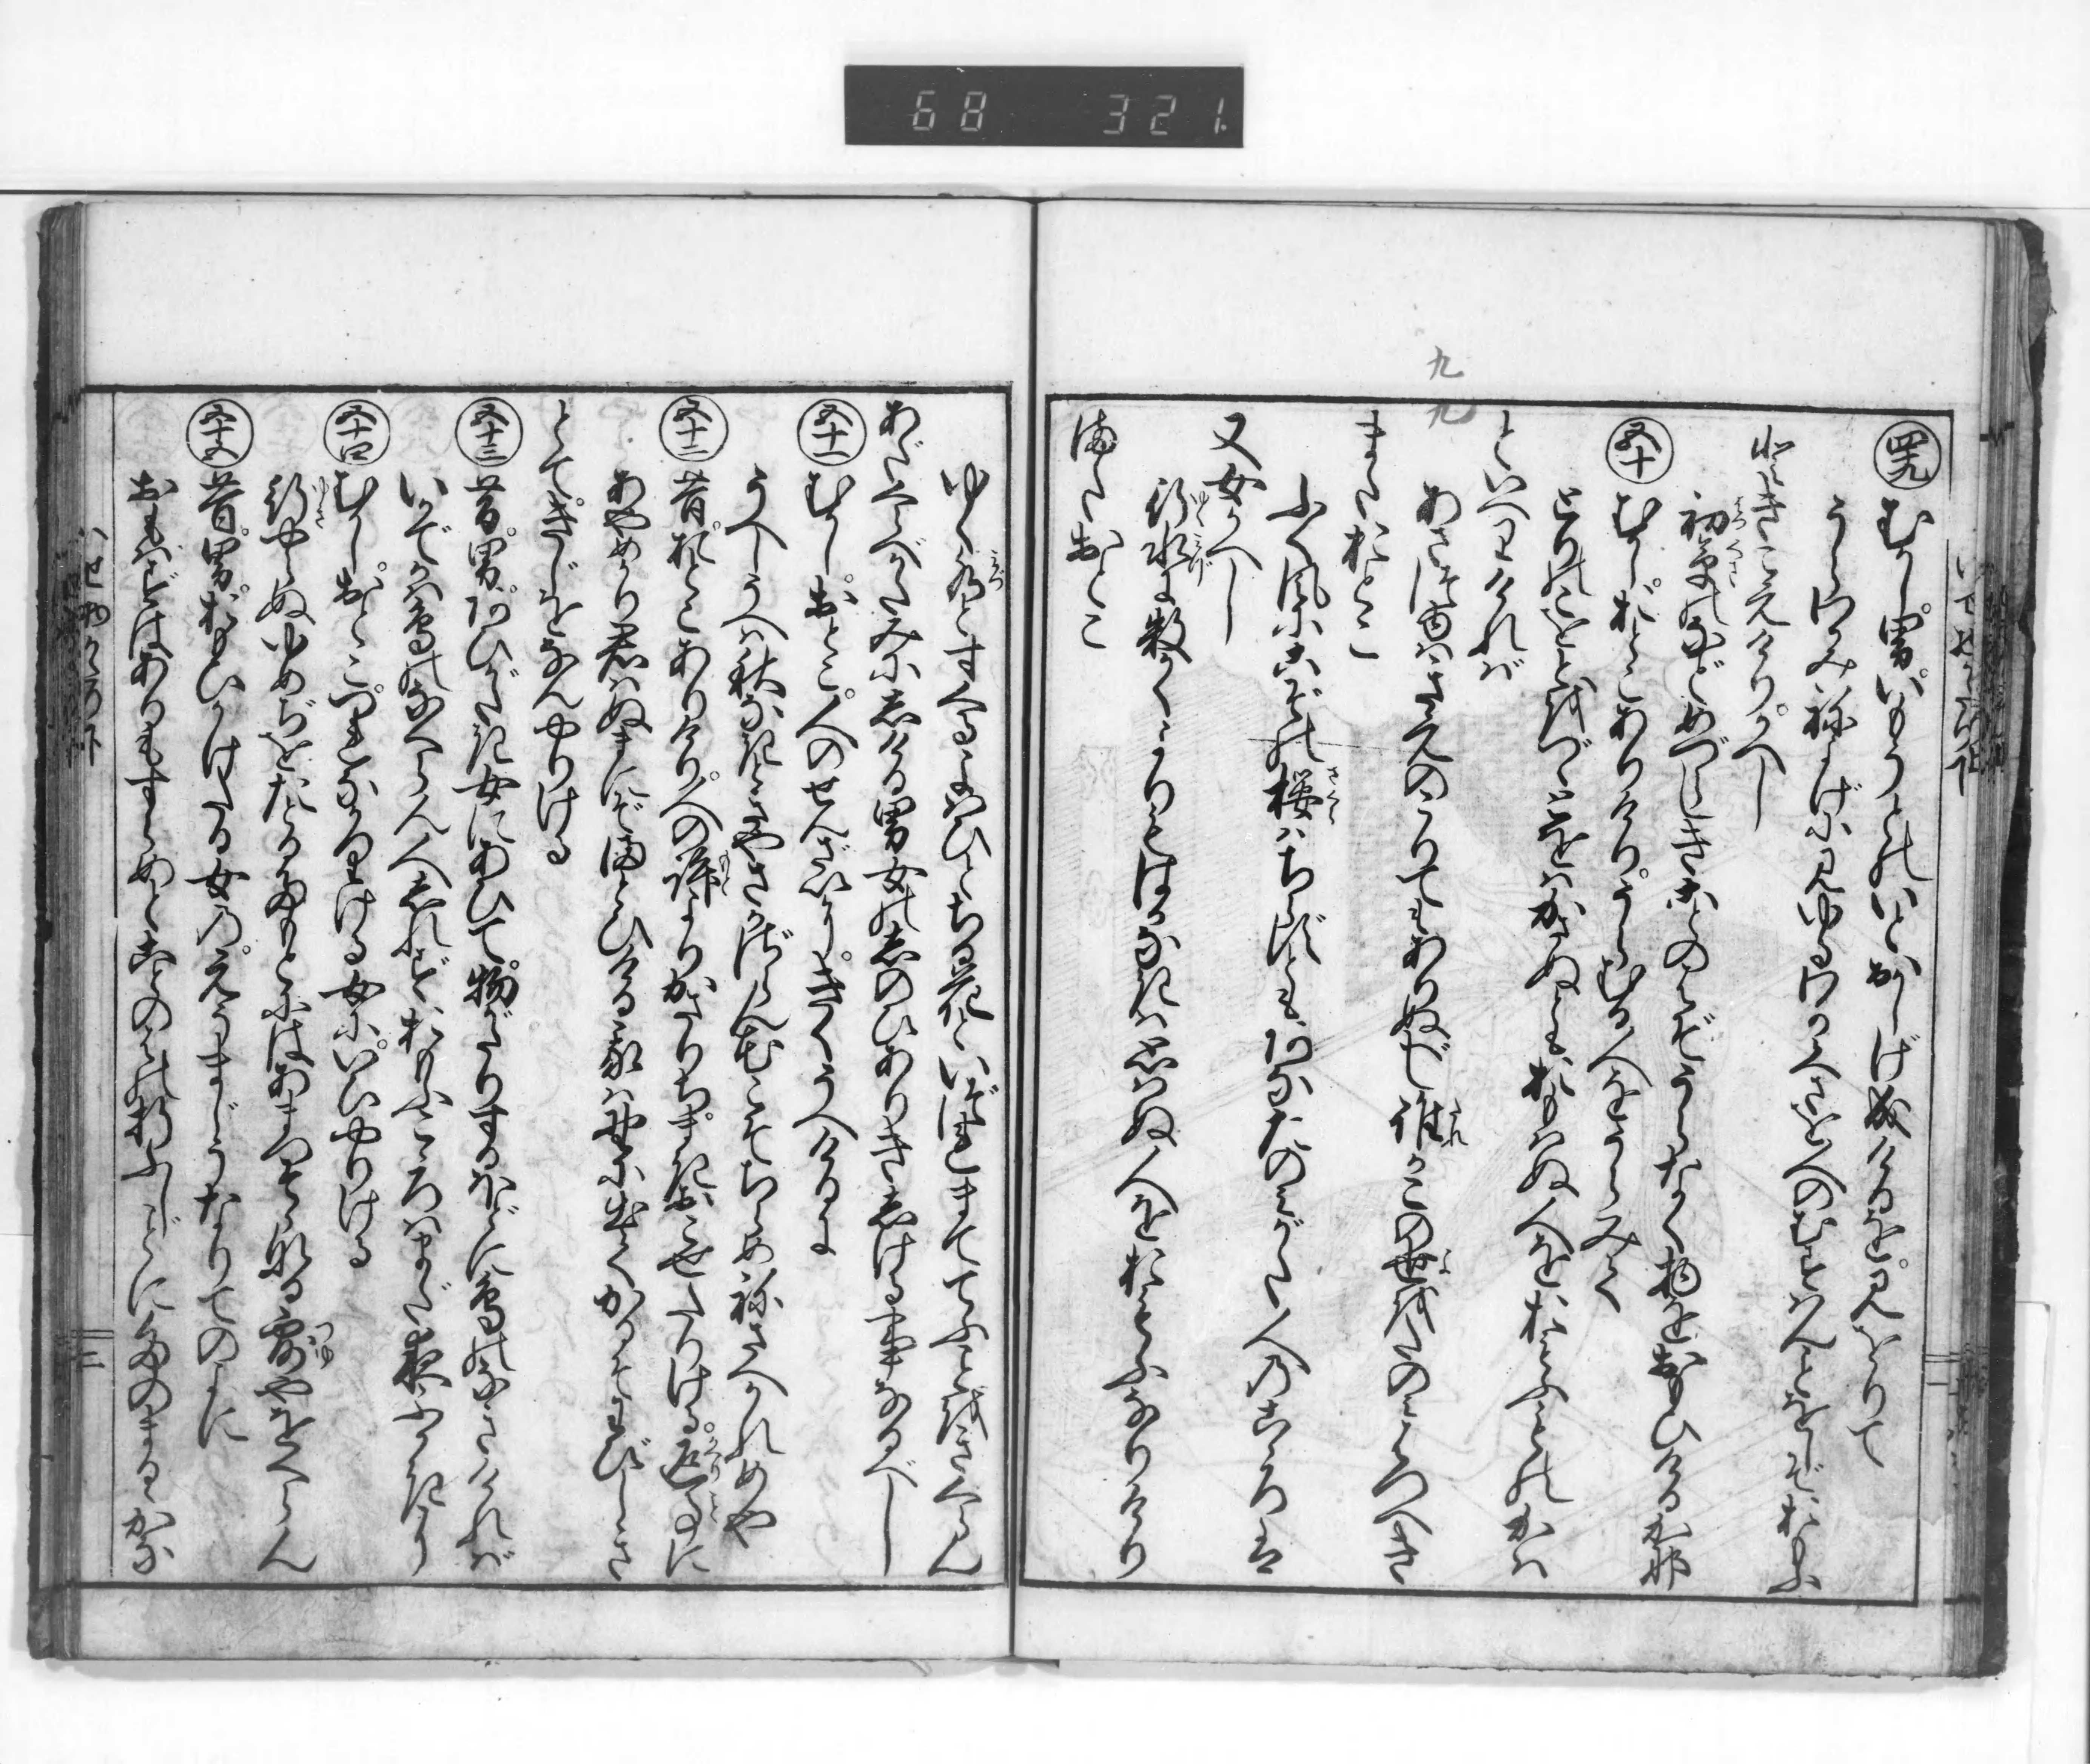 68 321
九
九
四九
むかし男いもうとのいとおかしげ成けるを見をりて
うらわかみねよげに見ゆるわか草を人のむすばんことをしぞおもふ
ときこえけりかへし
初草のなどめづらしきことのはぞうらなく物をおもひける哉
五十
むかしおとこありけりうらむる人をうらみて
とりのこをとをづゝとをはかさぬともおもはぬ人をおもふものかは
といへりければ
あさ露はきえのこりてもありぬべし誰かこの世をたのみはつべき
またおとこ
ふく風にこぞの桜はちらずともあなたのみがた人の心は
又女かへし
行水に数かくよりもはかなきは思はぬ人をおもふなりけり
またおとこ
ゆく水とすぐるよはひとちる花といづれまててふことをきくらん
あだくらべかたみにしける男女のしのびありきしける事なるべし
五十一
むかしおとこ人のせんざいにきくうへけるに
うへしうへば秋なきときやさかざらん花こそちらめねさへかれめや
五十二
昔おとこありけり人の許よりかざりちまきおこせたりける返事に
あやめかり君はぬまにぞまどひける我は野に出てかるぞわびしき
とてきじをなんやりける
五十三
昔男あひがたき女にあひて物がたりするほどに鳥のなきければ
いかでかは鳥のなくらん人しれずおもふこころはまだ夜ふかきに
五十四
むかしおとこつれなかりける女にいひやりける
行やらぬゆめぢをたのむたもとにはあまつそらなる露やをくらん
五十五
昔男おもひかけたる女のえうまじうなりてのよに
おもはずはありもすらめどことのはのおりふしごとにたのまるゝかな
いせ物かたり下
三